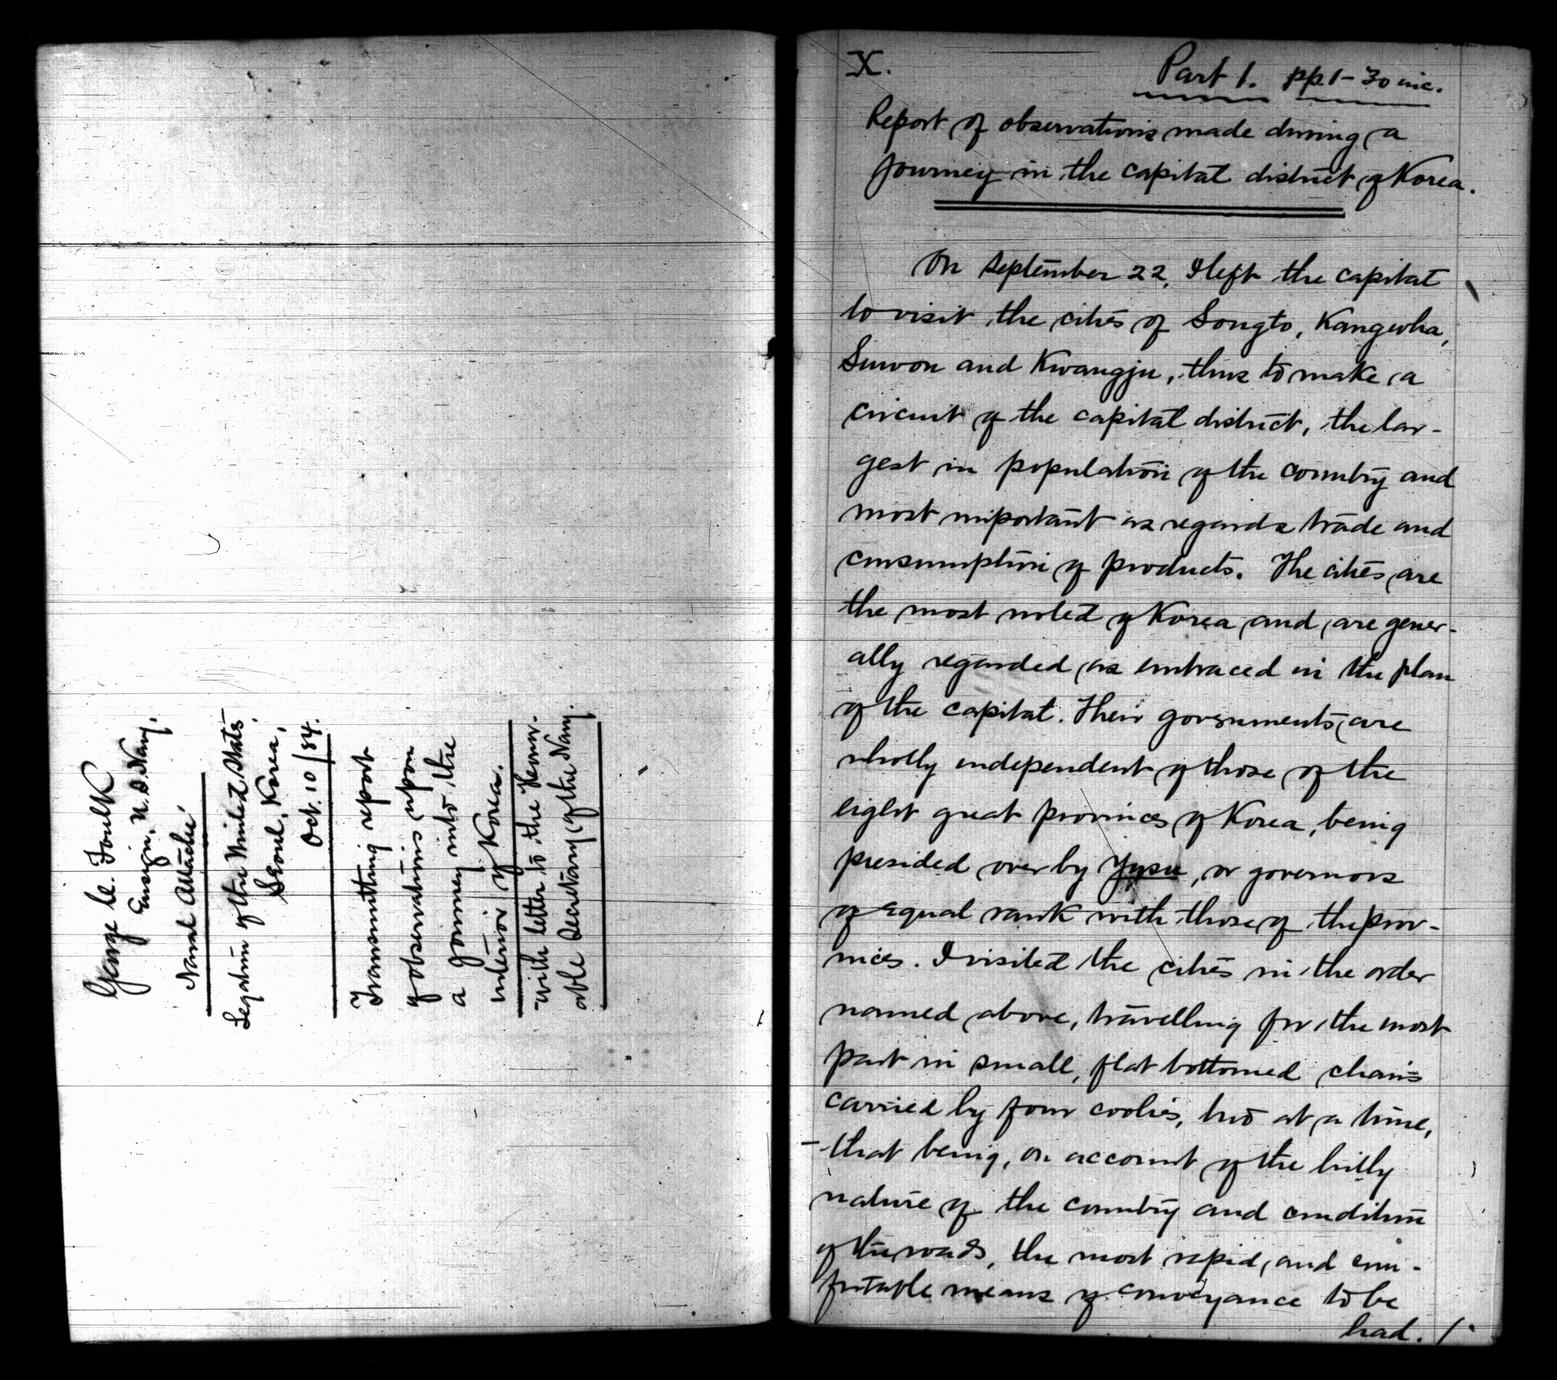 George C. Foulk
Ensign, U.S. Navy,
Naval Attaché
Legation of the United States,
Seoul, Korea,
Oct. 10/84.
Transmitting report
of observations upon
a journey into the
interior of Korea.
with letter to the Honor-
able Secretary of the Navy.
X.
Part 1. pp 1-30 inc.
Report of observations made during a
journey in the capital district of Korea.
On September 22, I left the capital
to visit the cities of Songto, Kangwha,
Suwon and Kwangju, thus to make a
circuit of the capital district, the lar-
gest in population of the country and
most important as regards trade and
consumption of products. The cities are
the most noted of Korea and are gener-
ally regarded as embraced in the plan
of the capital. Their governments are
wholly independent of those of the
eight great provinces of Korea, being
presided over by Yusu, or governors
of equal rank with those of the prov-
inces. I visited the cities in the order
named above, travelling for the most
part in small, flat bottomed chairs
carried by four coolies, two at a time,
-that being, on account of the hilly
nature of the country and condition
of the roads, the most rapid and com-
fortable means of conveyance to be
had. 1.